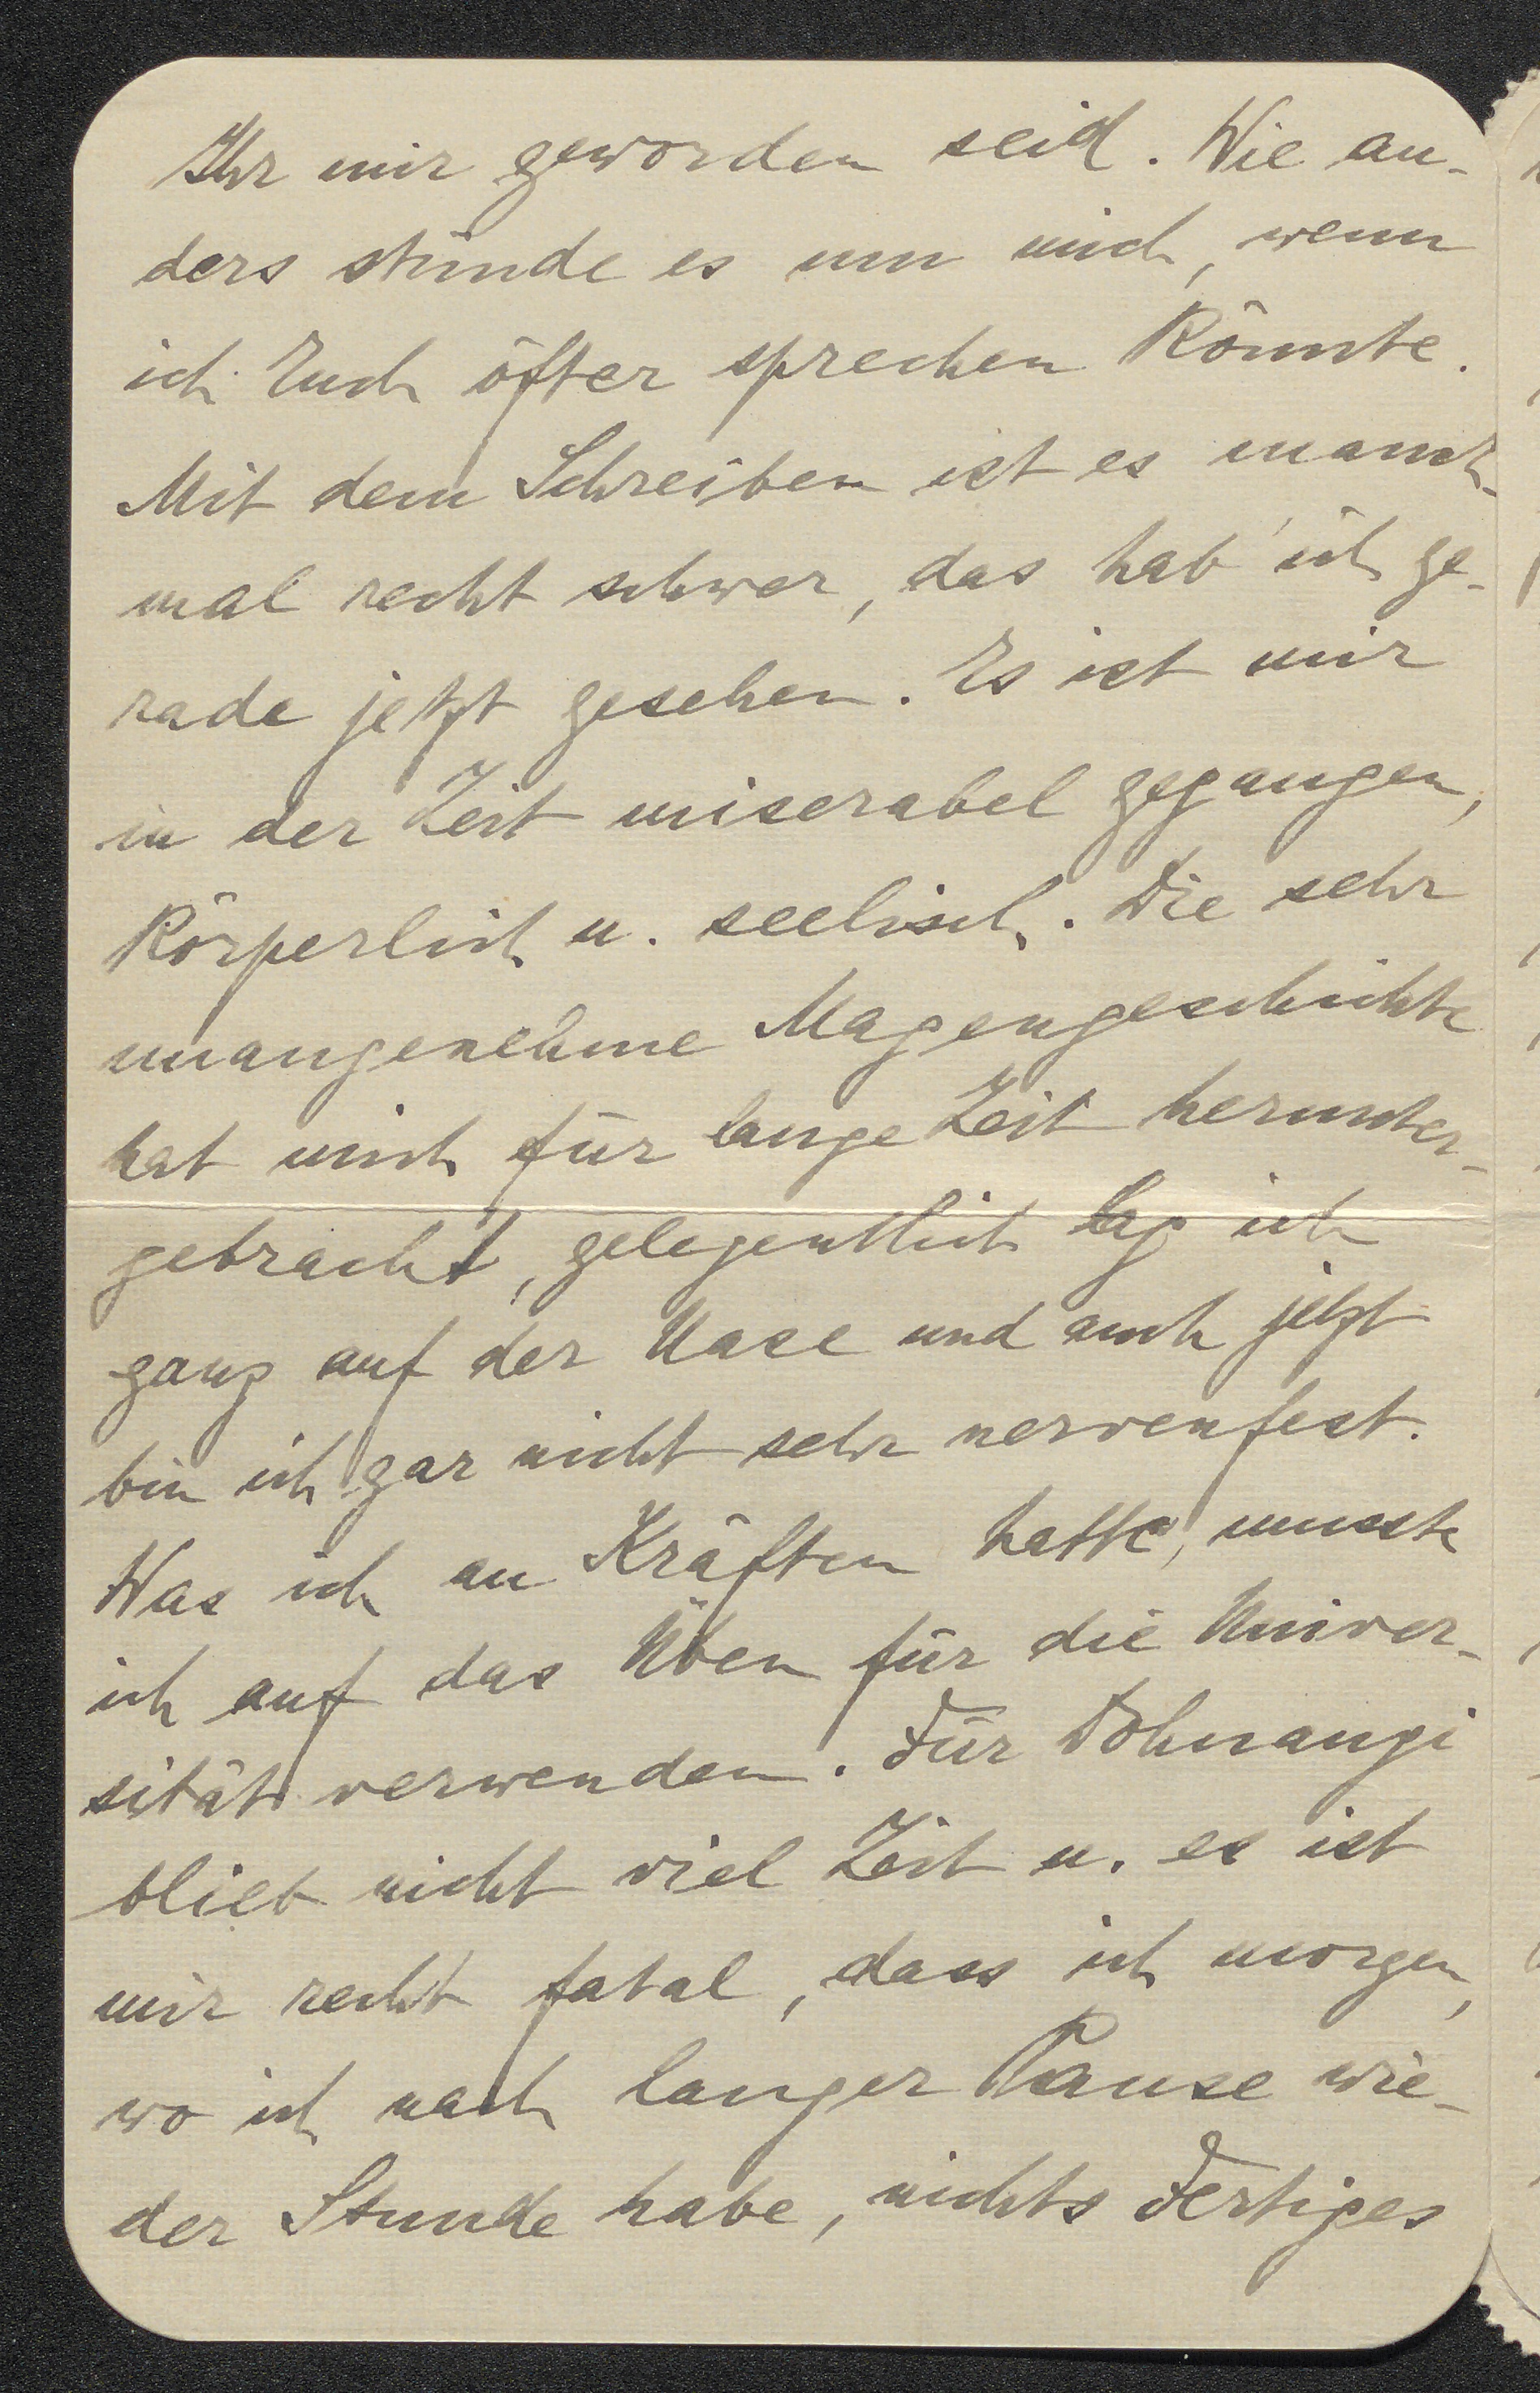 Ihr mir geworden seid. Wie an-
ders stünde es um mich, wenn
ich Euch öfter sprechen könnte.
Mit dem Schreiben ist es manch-
mal recht schwer, das hab' ich ge-
rade jetzt gesehen. Es ist mir
in der Zeit miserabel gegangen,
körperlich u. seelisch. Die sehr
unangenehme Magengeschichte
hat mich für lange Zeit herunter-
gebracht, gelegentlich lag ich
ganz auf der Nase und auch jetzt
bin ich gar nicht sehr nervenfest.
Was ich an Kräften hatte, musste
ich auf das Üben für die Univer-
sität verwenden. Für Dohnanyi
blieb nicht viel Zeit u. es ist
mir recht fatal, dass ich morgen,
wo ich nach langer Pause wie-
der Stunde habe, nichts Fertiges